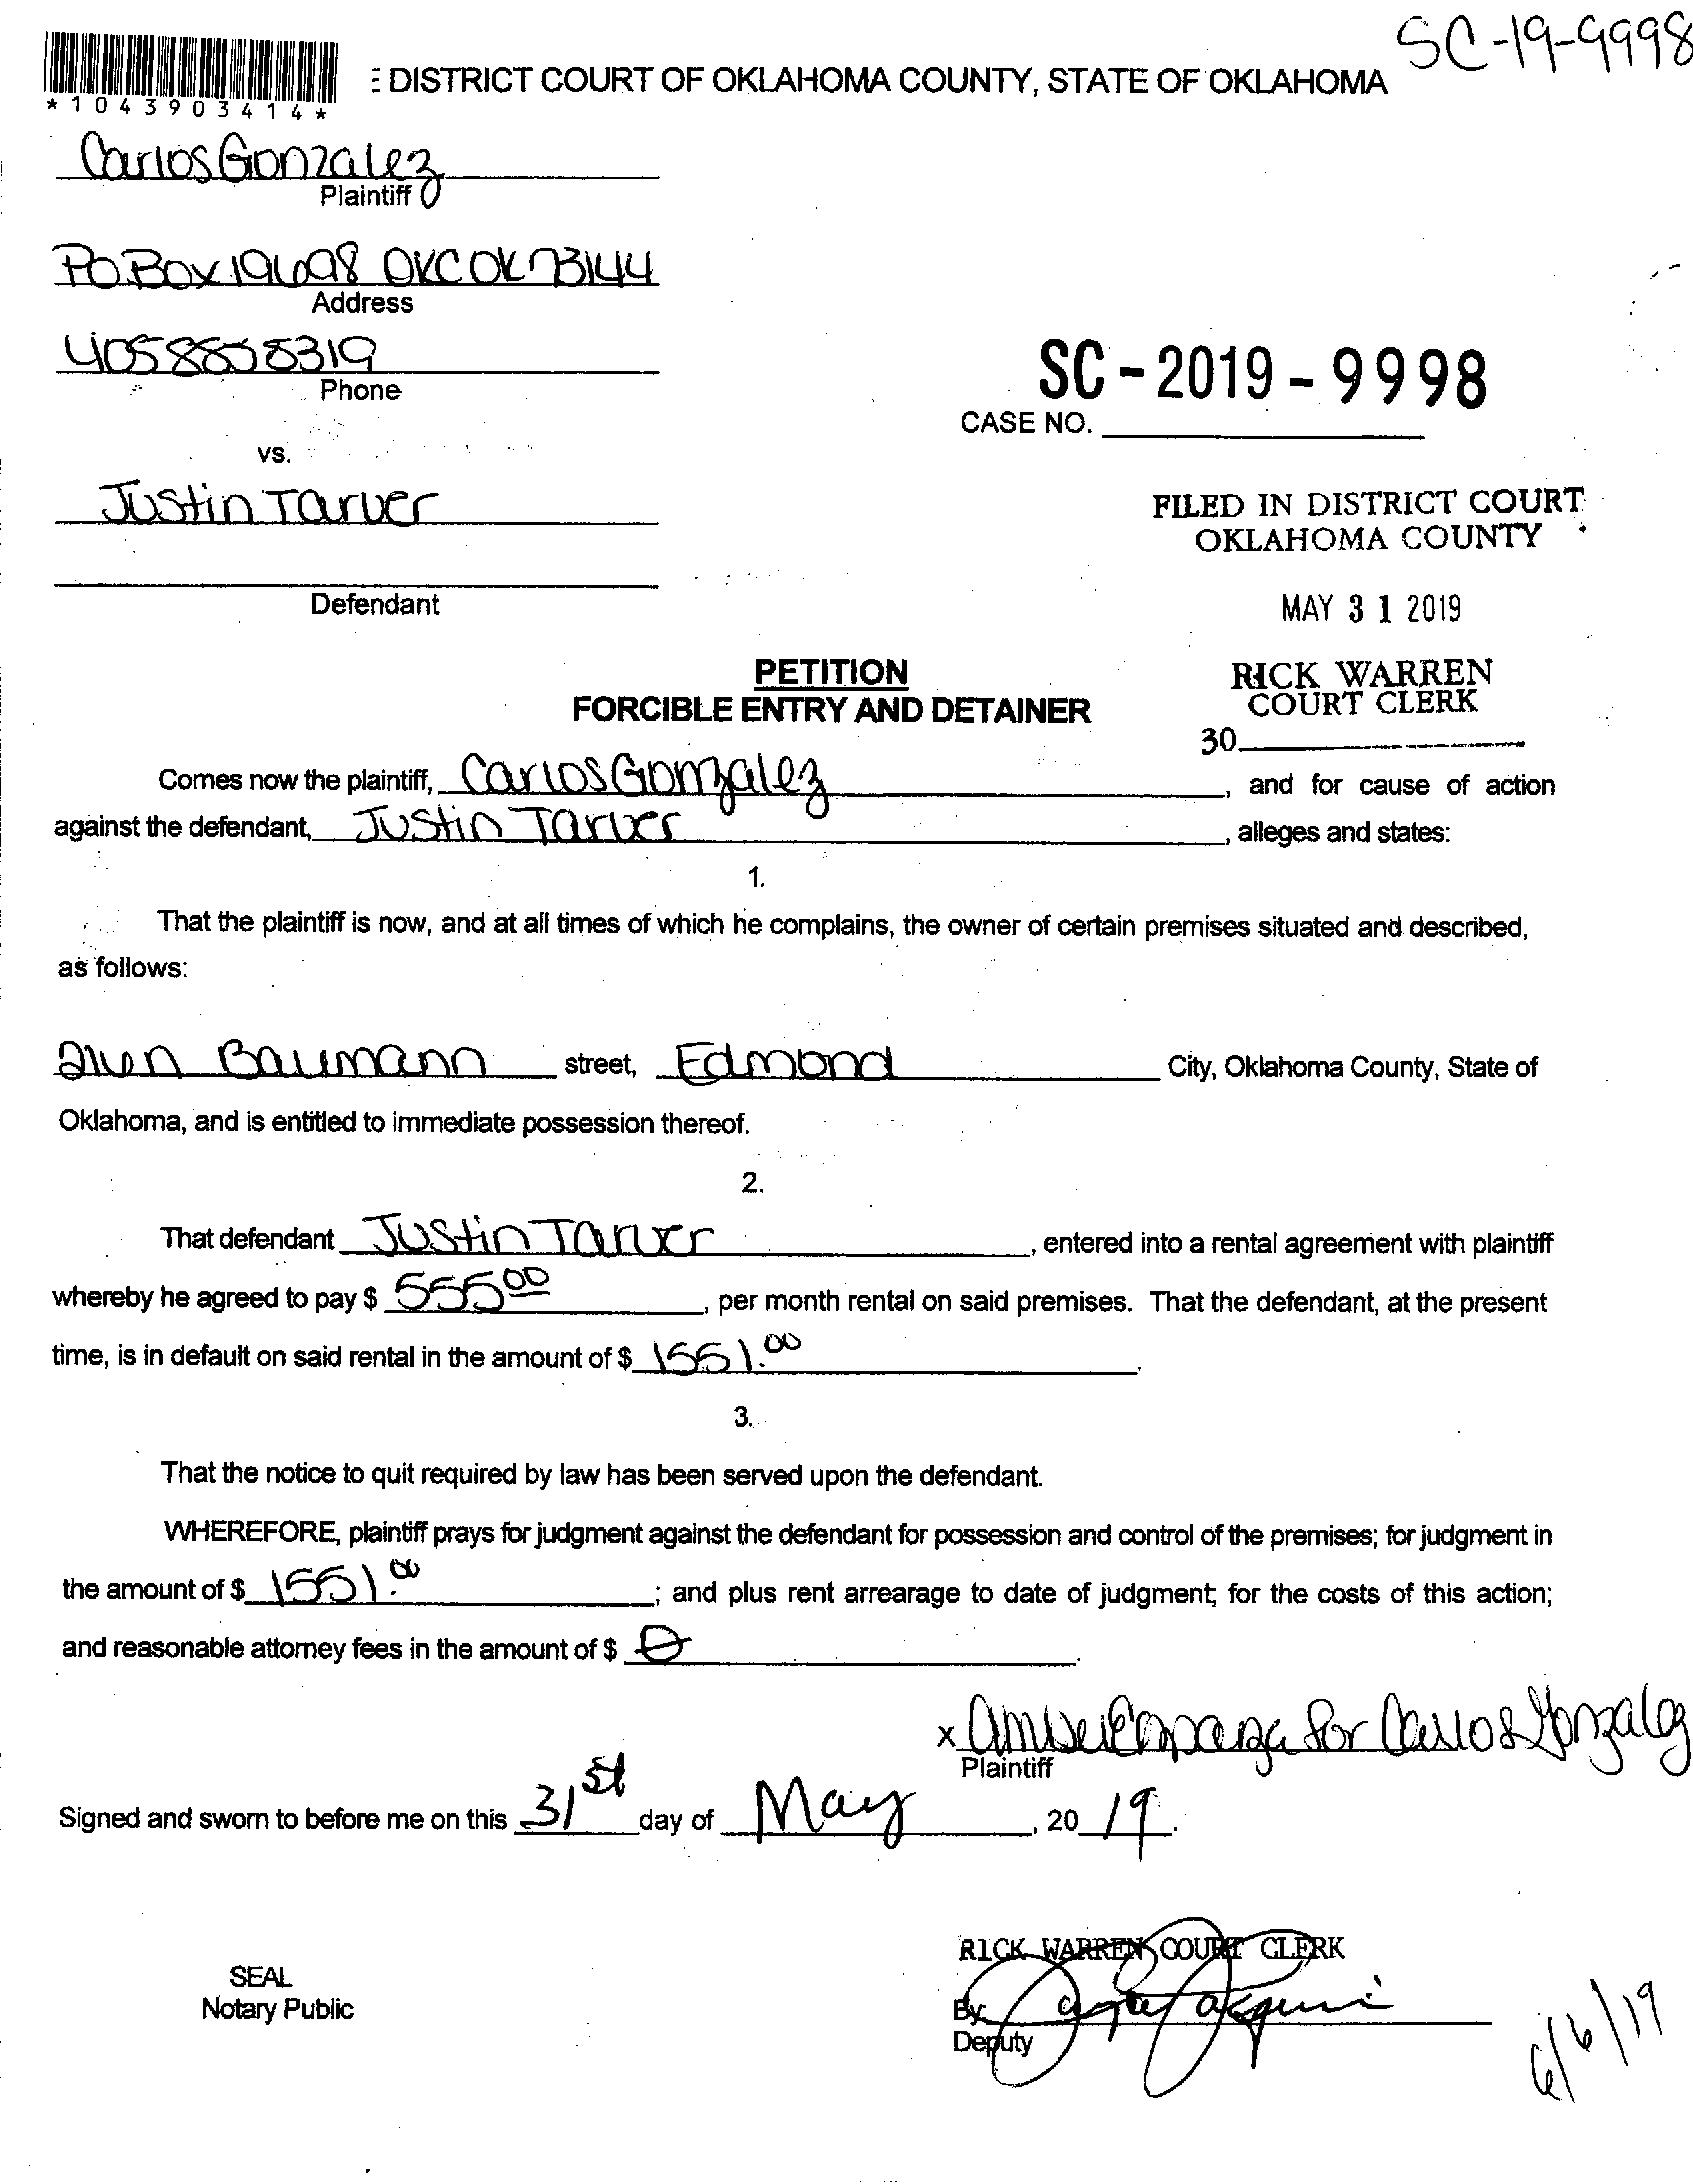 SC-19-9998
E DISTRICT COURT OF OKLAHOMA COUNTY, STATE OF OKLAHOMA
*1043903414*
Carlos Gonzalez
Plaintiff
PO Box 19698 OKC OK 73144
Address
Phone
SC-2019-9998
CASE NO.
vs.
Justin Tarver
FILED IN DISTRICT COURT
OKLAHOMA COUNTY
Defendant
MAY 31 2019
PETITION
FORCIBLE ENTRY AND DETAINER
RICK WARREN
COURT CLERK
30
Comes now the plaintiff, Carlos Gonzalez, and for cause of action
against the defendant, Justin Tarver, alleges and states:
1.
That the plaintiff is now, and at all times of which he complains, the owner of certain premises situated and described,
as follows:
Baumann street, Edmond City, Oklahoma County, State of
Oklahoma, and is entitled to immediate possession thereof.
2.
That defendant Justin Tarver, entered into a rental agreement with plaintiff
whereby he agreed to pay $ 555.00, per month rental on said premises. That the defendant, at the present
time, is in default on said rental in the amount of $ 1551.00.
3.
That the notice to quit required by law has been served upon the defendant.
WHEREFORE, plaintiff prays for judgment against the defendant for possession and control of the premises; for judgment in
the amount of $ 1551.00; and plus rent arrearage to date of judgment; for the costs of this action;
and reasonable attorney fees in the amount of $ 0.
x Amber Esparza for Carlos Gonzalez
Plaintiff
Signed and sworn to before me on this 31st day of May, 2019.
RICK WARREN COURT CLERK
SEAL
Notary Public
By
Deputy
6/6/19